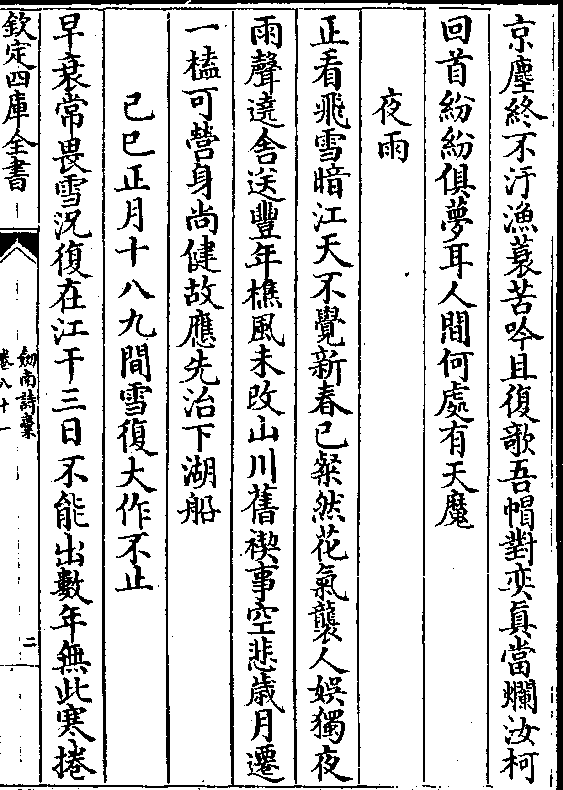 京塵終不汙漁蓑苦吟且復歌吾帽對奕真當爛汝柯
回首紛紛俱夢耳人間何處有天魔
夜雨
正看飛雪暗江天不覺新春已粲然花氣襲人娯獨夜
雨聲遶舍送豐年樵風未改山川舊禊事空悲歳月遷
一榼可營身尚健故應先治下湖船
己巳正月十八九間雪復大作不止
早衰常畏雪況復在江干三日不能出數年無此寒捲
欽定四庫全書
劒南詩藁
卷八十一
二